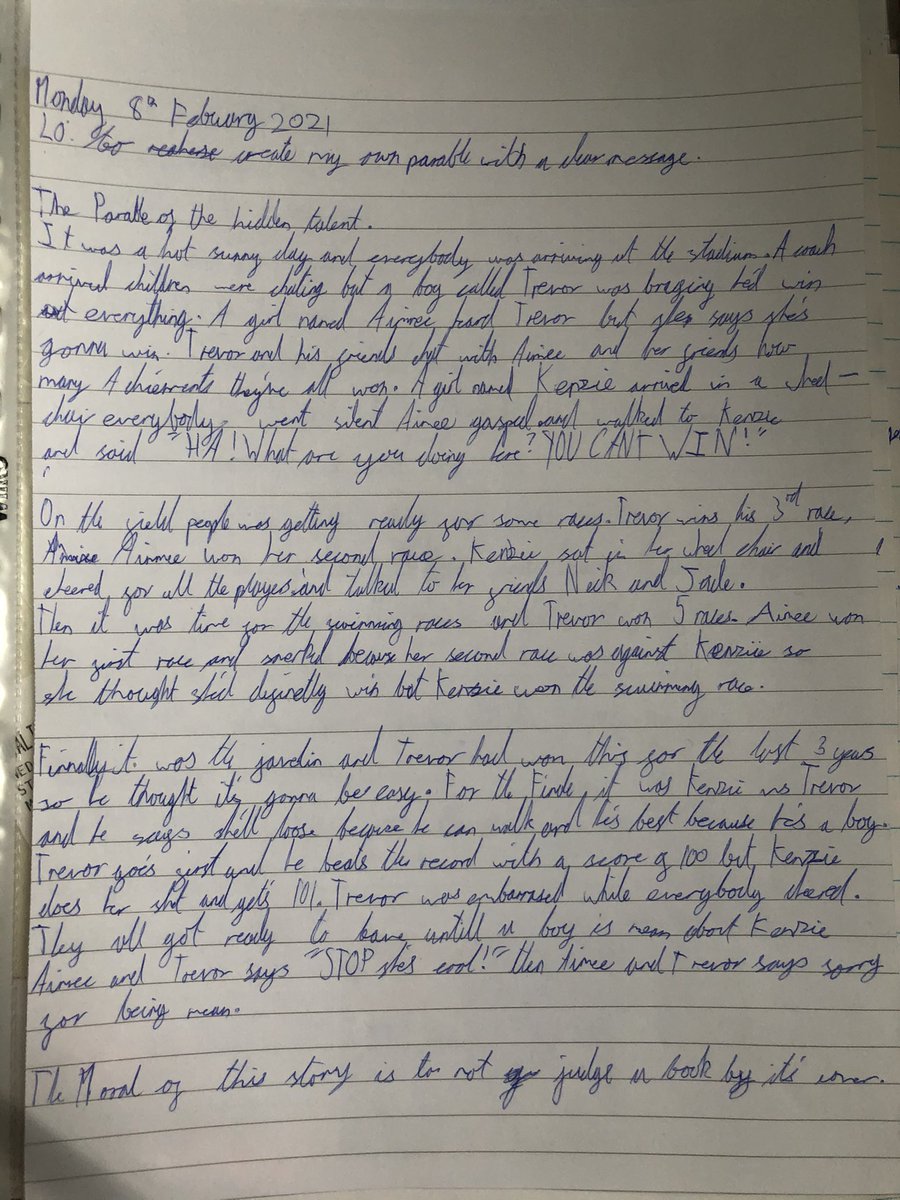 Monday 8th Febuary 2021
LO: to reaherse create my own parable with a clear message.
The Parable of the hidden talent.
It was a hot sunny day and everybody was arriving at the stadium. A coach
arrived children were chating but a boy called Trevor was braging he'd win
everything. A girl named Aimee heard Trevor but she says she's
gonna win. Trevor and his friends chat with Aimee and her friends how
many Achievments they've all won. A girl named Kenzie arrived in a wheel-
chair everybody went silent Aimee gasped and walked to Kenzie
and said "HA! What are you doing here? YOU CANT WIN!"
On the field people was getting ready for some races. Trevor wins his 3rd race,
Aimee won her second race. Kenzie sat in her wheel chair and
cheered for all the players and talked to her friends Neick and Jade.
Then it was time for the swimming races and Trevor won 5 races. Aimee won
her first race and smerked becaus her second race was against Kenzie so
she thought she'd definetly win but Kenzie won the swimming race.
Finnally it was the javelin and Trevor had won this for the last 3 years
so he thought it's gonna be easy. For the Finale it was Kenzie vs Trevor
and he says she'll loose because he can walk and he's best because he's a boy.
Trevor goes first and he beats the record with a score of 100 but Kenzie
does her shot and gets 101. Trevor was embarrased while everybody cheered.
They all got ready to leave untill a boy is mean about Kenzie
Aimee and Trevor says "STOP she's cool!" then Aimee and Trevor says sorry
for being mean.
The Moral of this story is to not judge a book by it's cover.